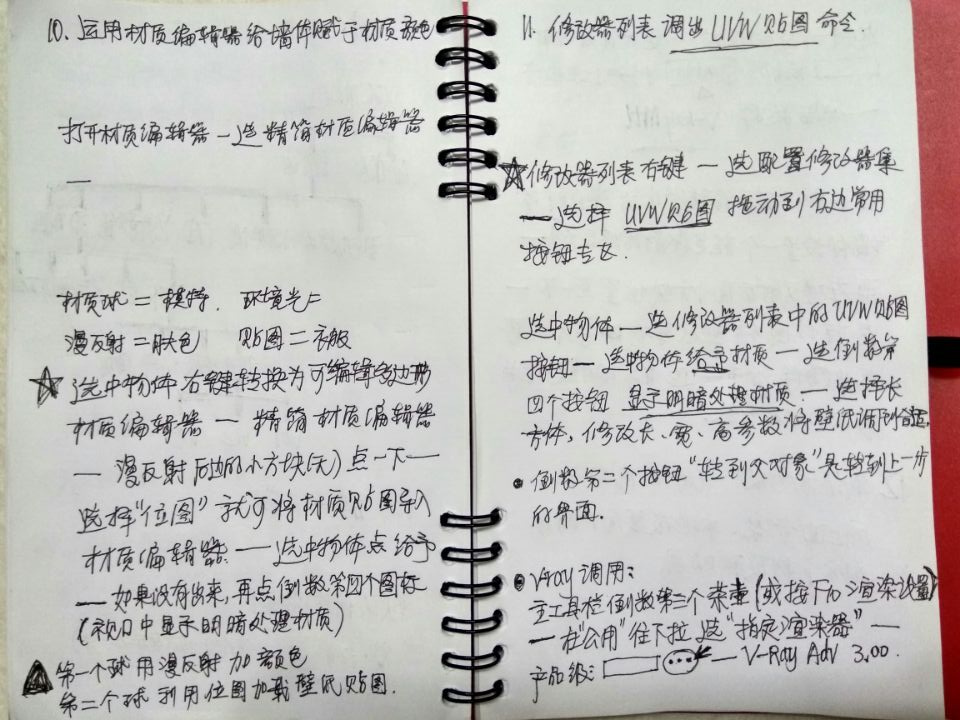 10. 运用材质编辑器给墙体赋于材质颜色
打开材质编辑器 — 选精简材质编辑器
—
材质球 = 模特. 环境光 =
漫反射 = 肤色 贴图 = 衣服
☆ 选中物体右键转换为可编辑多边形
材质编辑器 — 精简材质编辑器
— 漫反射后边的小方块(无)点一下 —
选择"位图"就可将材质贴图导入
材质编辑器. — 选中物体点给予
— 如果没有出来, 再点倒数第四个图标
(视口中显示明暗处理材质)
▲ 第一个球用漫反射加颜色
第二个球利用位图加载壁纸贴图.
11. 修改器列表调出 UVW贴图 命令.
☆ 修改器列表右键 — 选配置修改器集
— 选择 UVW贴图 拖动到右边常用
按钮去.
选中物体 — 选修改器列表中的UVW贴图
按钮 — 选中物体给予材质 — 选倒数第
四个按钮 显示明暗处理材质 — 选择长
方体, 修改长、宽、高参数将壁纸调到合适.
• 倒数第二个按钮"转到父对象"是转到上一步
的界面.
• V-ray 调用:
主工具栏倒数第三个茶壶(或按下F10渲染设置)
— 在"公用"往下拉选"指定渲染器" —
产品级: … — V-Ray Adv 3.00.